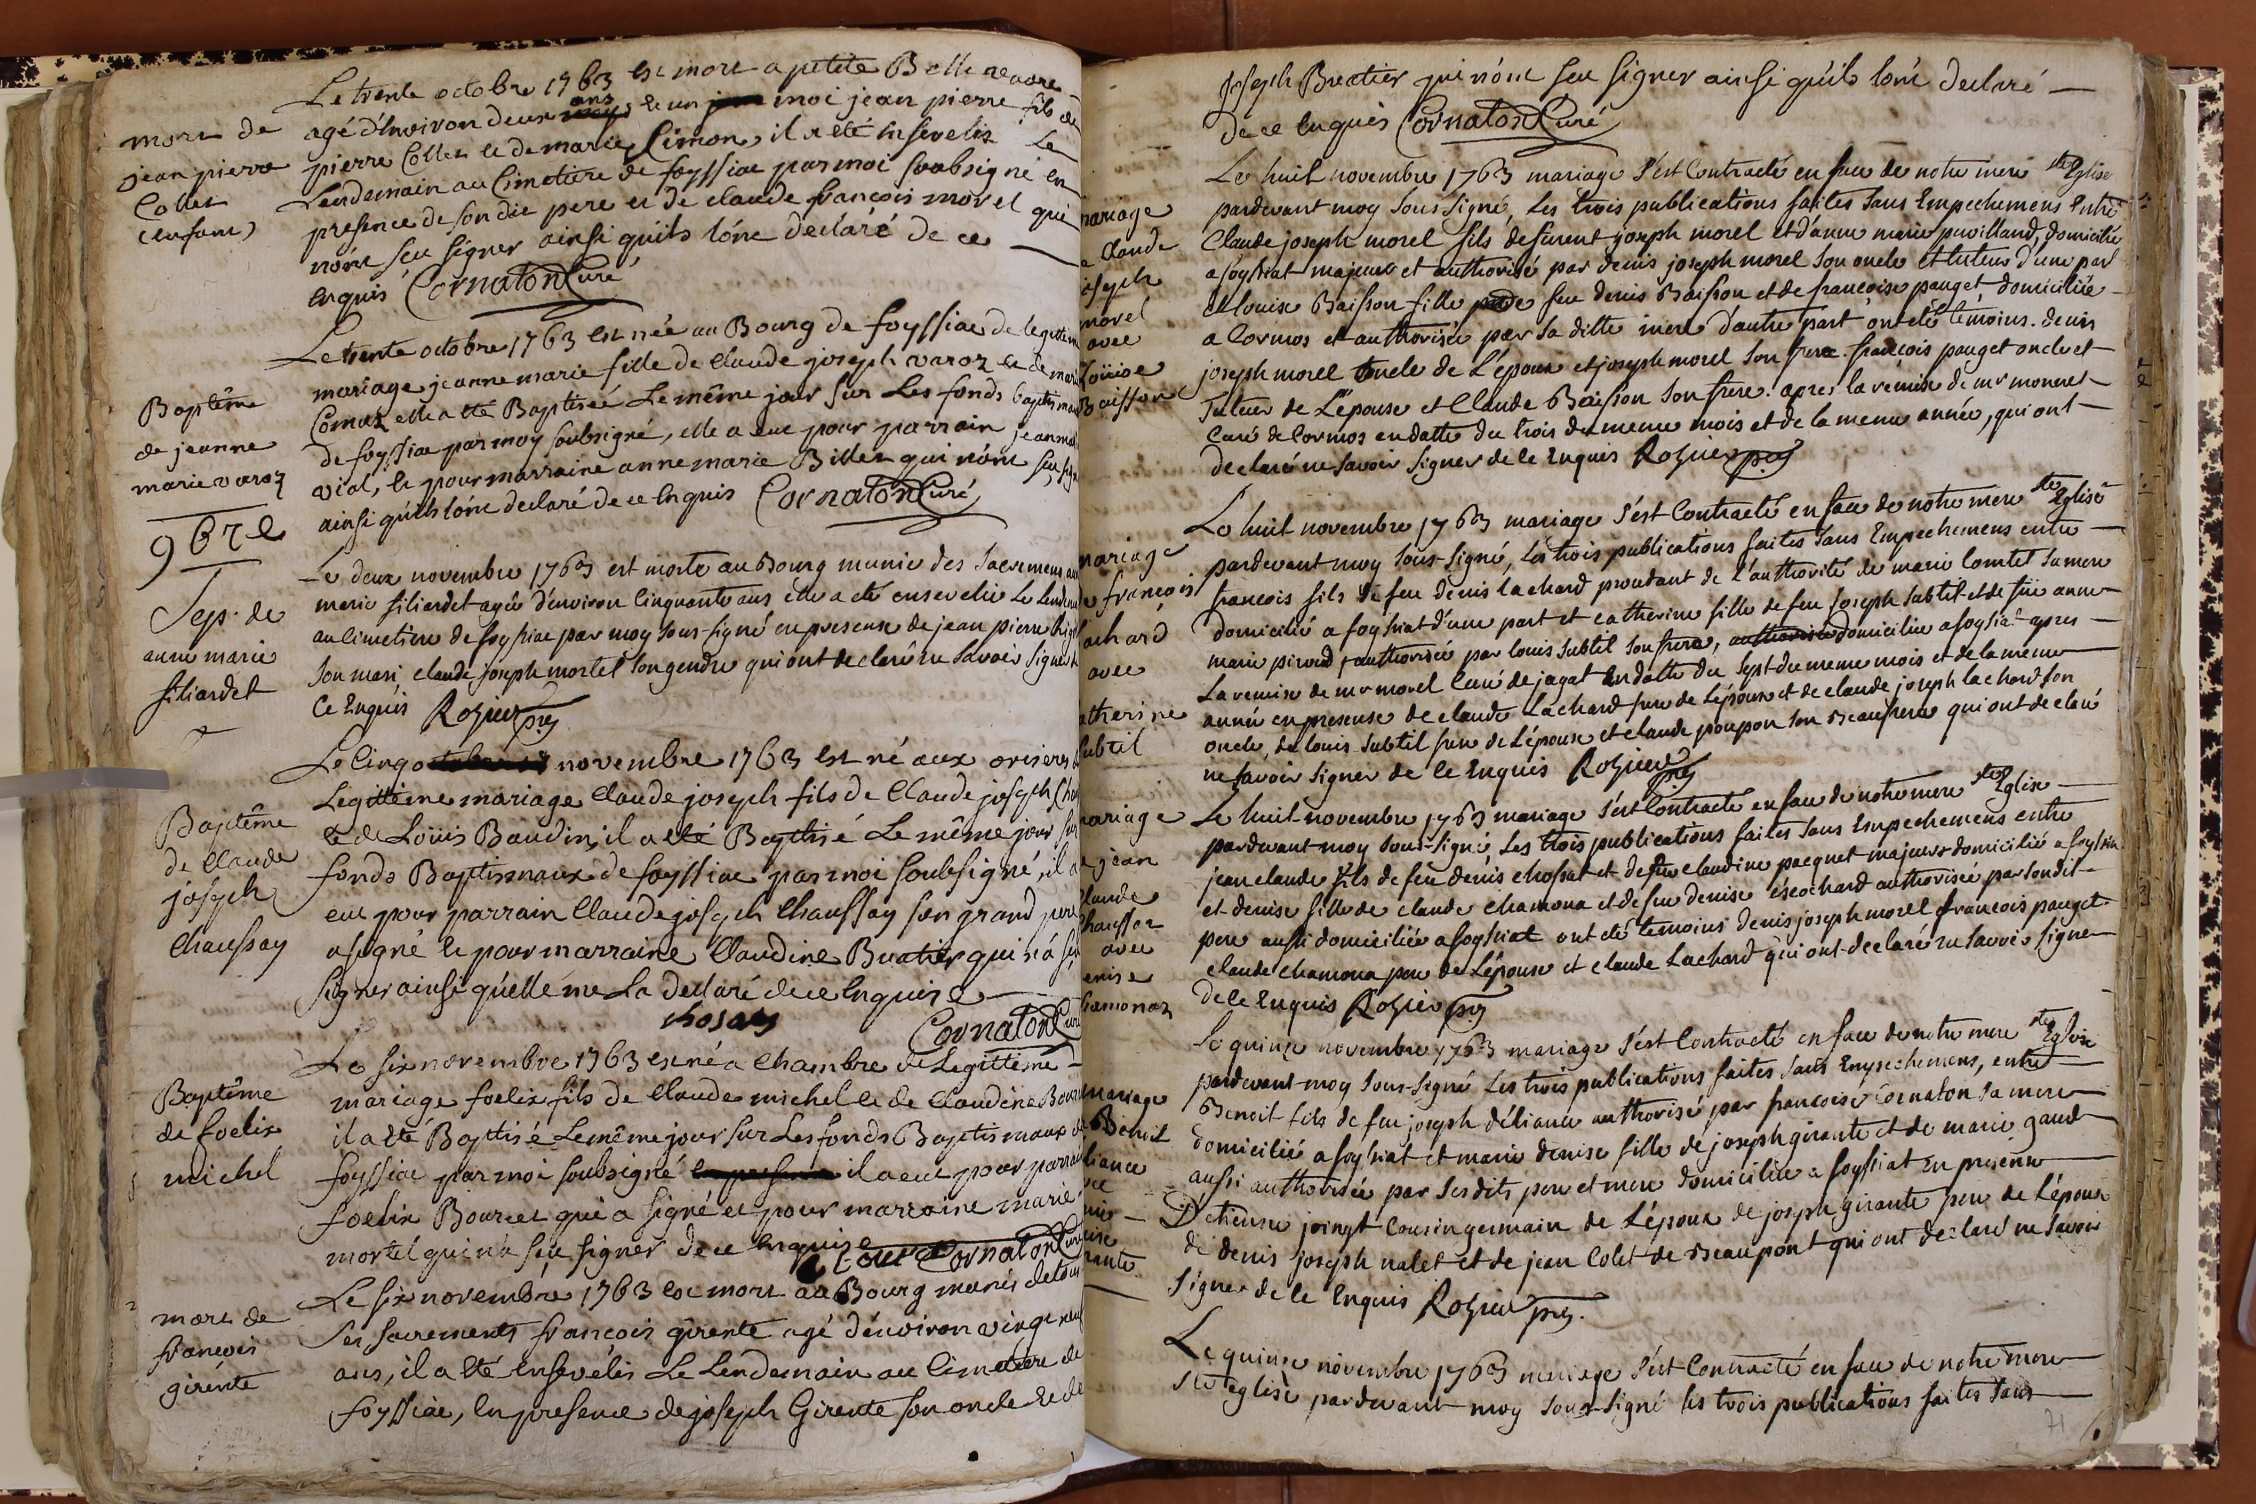 mort de
jean pierre
Collet
(enfant)
Le trente octobre 1763 est mort a petite Bellenavre
agé d'Environ deux ans et un moi jean pierre fils de
pierre Collet et de marie Simon, il a eté Ensevelis Le
Lendemain au Cimetiere de foyssiac par moi soubsigné en
presence de son dit pere et de claude francois morel qui
n'ont sçu signer ainsi qu'ils l'ont declaré de ce
Enquis Cornaton Curé
Baptême
de jeanne
marie varoz
Le trente octobre 1763 est née au Bourg de foyssiac de legittime
mariage jeanne marie fille de Claude joseph varoz et de marie
Comaz elle a eté Baptisée Le même jour sur Les fonds baptismaux
de foyssiac par moy soubsigné, elle a eue pour parrain jean
vial, et pour marraine anne marie Billet qui n'ont sçu signer
ainsi qu'ils l'ont declaré de ce Enquis Cornaton Curé
9bre
Sep. de
anne marie
filiardet
Le deux novembre 1763 est morte au Bourg munie des sacremens anne
marie filiardet agée d'environ Cinquante ans elle a eté ensevelie Le Lendemain
au cimetiere de foyssiac par moy sous-signé en presense de jean pierre
son mari, claude joseph mortel son gendre qui ont declaré ne savoir signer de
Ce Enquis Rozier ptre
Baptême
de Claude
joseph
Chaussay
Le Cinq novembre 1763 est né aux oriseres de
Legittime mariage Claude joseph fils de Claude joseph
et de Loüis Baudin, il a eté Baptisé Le même jour sur
fonds Baptismaux de foyssiac par moi soubsigné, il a
eut pour parrain Claude joseph Chaussay son grand pere
a signé et pour marraine Claudine Buatier qui n'a sçu
signer ainsi qu'elle me La declaré de ce Enquise
Cornaton Curé
Baptême
de foelix
michel
Le six novembre 1763 est né a Chambre de Legittime
mariage foelix fils de Claude michel et de Claudine
il a eté Baptisé Le même jour sur Les fonds Baptismaux de
foyssiac par moi soubsigné il a eut pour parrain
foelix Bourcet qui a signé et pour marraine marie
mortel qui n'a sçu signer de ce Enquise
Cornaton Curé
mort de
francois
girente
Le six novembre 1763 est mort au Bourg munis de tous
ses sacrements francois girente agé d'environ vingt neuf
ans, il a eté Ensevelis Le Lendemain au Cimetiere de
foyssiac, En presence de joseph Girente son oncle et de
joseph Buatier qui n'ont sçu signer ainsi qu'ils l'ont declaré
de ce Enquis Cornaton Curé
mariage
e Claude
oseph
morel
avec
Loüise
Baisson
Le huit novembre 1763 mariage s'est Contracté en face de notre mere ste Eglise
pardevant moy sous-signé, Les trois publications faites sans Empechemens Entre
Claude joseph morel fils de furent joseph morel et d'anne marie puvilland, domicilié
a foyssiat majeur et authorisé par denis joseph morel son oncle et tuteur d'une part
et louise Baisson fille de feu denis Baisson et de francoise pauget domiciliée
a Cormos et authorisée par sa ditte mere d'autre part ont eté témoins. denis
joseph morel oncle de L'epoux et joseph morel son frere. francois pauget oncle et
Tuteur de L'epouse et Claude Baisson son frere. apres la remise de mr monnet
Curé de Cormos en datte du trois du meme mois et de la meme année, qui ont
declaré ne savoir signer de ce Enquis Rozier ptre
mariage
de francois
achard
avec
atherine
ubtil
Le huit novembre 1763 mariage s'est Contracté en face de notre mere ste Eglise
pardevant moy sous-signé, Les trois publications faites sans Empechemens entre
francois fils de feu denis lachard procedant de L'authorité de marie Comtet sa mere
domicilié a foyssiat d'une part et catherine fille de feu joseph subtil et de fue anne
marie piroud, authorisée par louis subtil son frere, domiciliée a foyssiat apres
La remise de mr morel Curé de jayat En datte du sept du meme mois et de la meme
année en presense de claude Lachard frere de L'epoux et de claude joseph lachard son
oncle, de louis subtil frere de L'epouse et claude poupon son Beaufrere qui ont declaré
ne savoir signer de ce Enquis Rozier ptre
mariage
e jean
laude
haussat
avec
enise
hamonaz
Le huit novembre 1763 mariage s'est Contracté en face de notre mere ste Eglise
pardevant moy sous-signé Les trois publications faites sans Empechemens entre
jean claude fils de feu denis chossat et de fue claudine pacquet majeur domicilié a foyssia
et denise fille de claude chamona et de fue denise escochard authorisée par son dit
pere aussi domiciliée a foyssiat ont eté temoins denis joseph morel francois pauget
claude Chamona pere de L'epouse et claude Lachard qui ont declaré ne savoir signer
de ce Enquis Rozier ptre
mariage
Benoit
liance
Le quinze novembre 1763 mariage s'est Contracté en face de notre mere ste Eglise
pardevant moy sous-signé Les trois publications faites sans Empechemens, entre
Benoit fils de feu joseph déliance authorisé par francoise Cornaton sa mere
domicilié a foyssiat et marie denise fille de joseph girante et de marie gaud
aussi authorisée par ses dits pere et mere domiciliée a foyssiat En presense
D'etienne joingt Cousin germain de L'epoux de joseph girante pere de L'epouse
de denis joseph nalet et de jean Colet de Beaupont qui ont declaré ne savoir
signer de ce Enquis Rozier ptre.
Le quinze novembre 1763 mariage s'est Contracté en face de notre mere
ste eglise pardevant moy sous-signé les trois publications faites sans
71